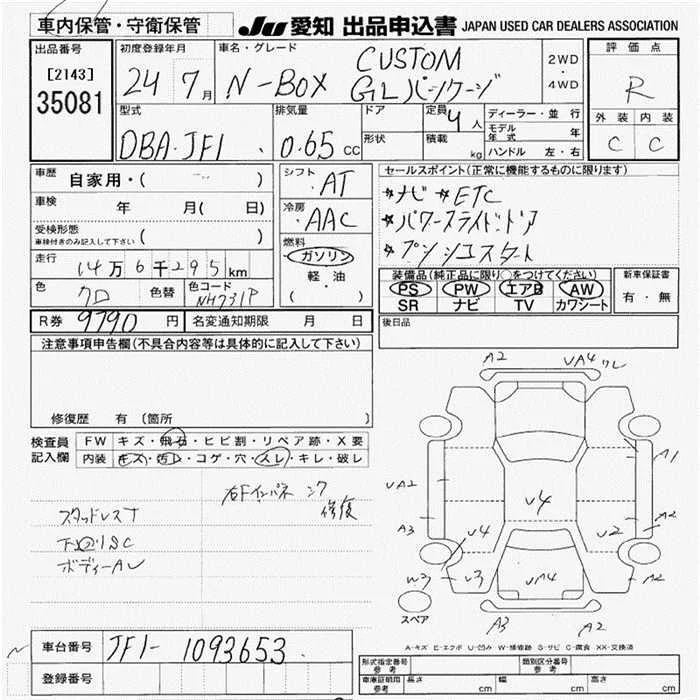 車内保管・守衛保管 JU 愛知 出品申込書 JAPAN USED CAR DEALERS ASSOCIATION
出品番号 初度登録年月 車名・グレード 評価点
[2143] 24 7月 N-BOX CUSTOM 2WD・4WD R
35081 GLパッケージ
型式 排気量 ドア 定員 4人 ディーラー・並行 外装 内装
DBA-JF1 0.65cc 形状 積載 kg モデル年式 年 C C
ハンドル 左・右
車歴 自家用・( ) シフト AT セールスポイント(正常に機能するものに限ります)
車検 年 月( 日) 冷房 AAC *ナビ *ETC
受検形態 ( ) *パワースライドドア
車検付きのみ記入して下さい 燃料 *プッシュスタート
走行 14万6千295km ガソリン
軽・油
( )
色 クロ 色替 色コード NH731P
装備品(純正品に限り○をつけてください) 新車保証書
PS PW エアB AW 有・無
SR ナビ TV カワシート
R券 9790円 名変通知期限 月 日 後日品
注意事項申告欄(不具合内容等は具体的に記入して下さい)
修復歴 有 (箇所 )
検査員記入欄 FW キズ・飛石・ヒビ割・リペア跡・X要
内装 キズ・汚レ・コゲ・穴・スレ・キレ・破レ
右Fインパネ
修復
スタッドレスT
ボディーAU
A2 UA4 ワレ
A1
UA2
A3 U4 U4 U2 A2
W3 U3 UA4 A2
スペア
A3 A2
A-キズ E-エクボ U-凹み W-補修跡 S-サビ C-腐食 XX-交換済
車台番号 JF1-1093653
登録番号
型式指定番号 参考 類別区分番号 参考
車庫証明用 参考 長さ cm 幅 cm 高さ cm